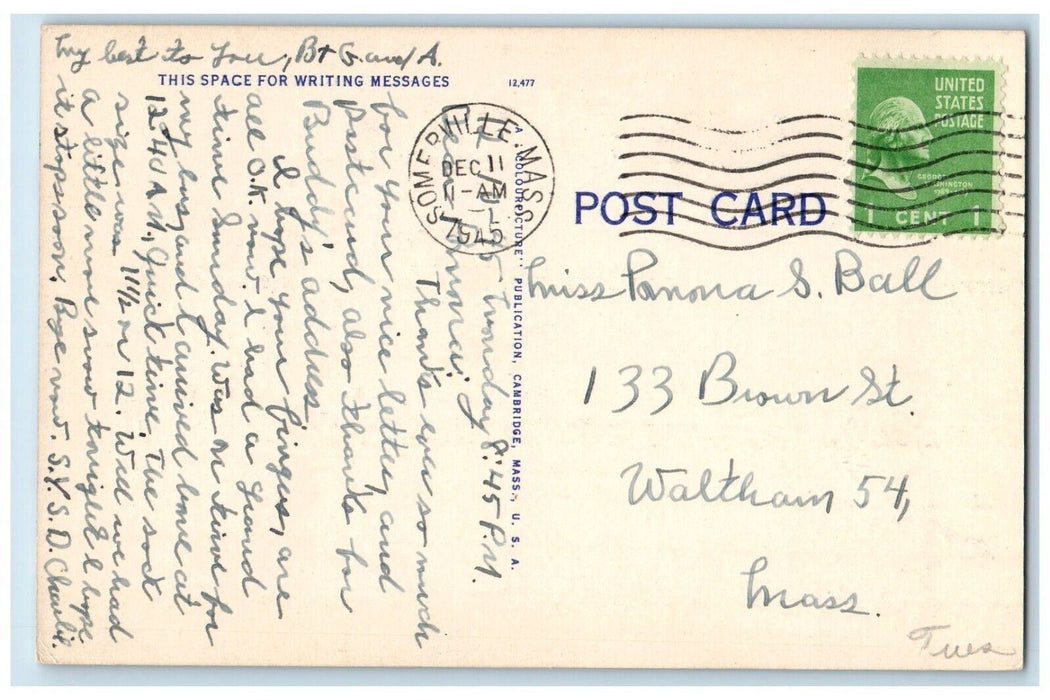 My best to you, B + G. and A.
THIS SPACE FOR WRITING MESSAGES
12,477
Monday 8:45 P.M.
Thanks ever so much
for your nice letter, and
postcard, also thanks for
Buddy's address.
I hope your fingers are
all O.K. now. I had a grand
time Sunday. Was on time for
my bus, and I arrived home at
12.40 A.M., Quick time. The sock
size was 11½ or 12. Well we had
a little more snow tonight I hope
it stops soon, Bye now. S.Y.S.D. Charlie.
A "COLOURPICTURE" PUBLICATION, CAMBRIDGE, MASS., U. S. A.
SOMERVILLE, MASS.
DEC 11
11-AM
1945
UNITED
STATES
POSTAGE
GEORGE
WASHINGTON
1 CENT 1
POST CARD
Miss Ramona S. Ball
133 Brown St.
Waltham 54,
Mass.
Tues